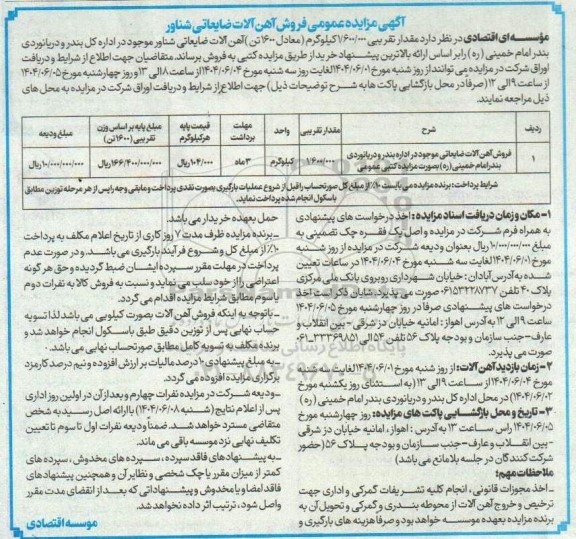 آگهی مزایده عمومی فروش آهن آلات ضایعاتی شناور
مؤسسه‌ای اقتصادی در نظر دارد مقدار تقریبی ۱/۶۰۰/۰۰۰ کیلوگرم (معادل ۱۶۰۰ تن) آهن آلات ضایعاتی شناور موجود در اداره کل بندر و دریانوردی
بندر امام خمینی (ره) را بر اساس ارائه بالاترین پیشنهاد خرید از طریق مزایده کتبی به فروش برساند. متقاضیان جهت اطلاع از شرایط و دریافت
اوراق شرکت در مزایده می توانند از روز شنبه مورخ ۱۴۰۴/۰۶/۰۱ لغایت روز سه شنبه مورخ ۱۴۰۴/۰۶/۰۴ از ساعت ۸ الی ۱۳ و روز چهارشنبه مورخ ۱۴۰۴/۰۶/۰۵
از ساعت ۹ الی ۱۲ (صرفا در محل بازگشایی پاکت ها به شرح توضیحات ذیل) جهت اطلاع از شرایط و دریافت اوراق شرکت در مزایده به محل های
ذیل مراجعه نمایند.
ردیف شرح مقدار تقریبی واحد مهلت برداشت قیمت پایه هر کیلوگرم مبلغ پایه بر اساس وزن تقریبی (۱۶۰۰ تن) مبلغ ودیعه
۱ فروش آهن آلات ضایعاتی موجود در اداره بندر و دریانوردی بندر امام خمینی (ره) بصورت مزایده کتبی عمومی ۱/۶۰۰/۰۰۰ کیلوگرم ۳ ماه ۱۰۴/۰۰۰ ریال ۱۶۶/۴۰۰/۰۰۰/۰۰۰ ریال ۱۰/۰۰۰/۰۰۰/۰۰۰ ریال
شرایط پرداخت: برنده مزایده می بایست ۱۰٪ از مبلغ کل صورتحساب را قبل از شروع عملیات بارگیری بصورت نقدی پرداخت و مابقی وجه را پس از هر مرحله توزین مطابق
باسکول انجام شده پرداخت نماید.
۱- مکان و زمان دریافت اسناد مزایده: اخذ درخواست های پیشنهادی
به همراه فرم شرکت در مزایده و اصل یک فقره چک تضمینی به
مبلغ ۱۰/۰۰۰/۰۰۰/۰۰۰ ریال بعنوان ودیعه شرکت در مزایده از روز شنبه
مورخ ۱۴۰۴/۰۶/۰۱ لغایت سه شنبه مورخ ۱۴۰۴/۰۶/۰۴ در ساعات تعیین
شده به آدرس آبادان: خیابان شهرداری روبروی بانک ملی مرکزی
پلاک ۴۰ تلفن ۰۶۱۵۳۲۲۸۷۳۷ صورت می پذیرد. شایان ذکر است اخذ
درخواست های پیشنهادی صرفا در روز چهارشنبه مورخ ۱۴۰۴/۰۶/۰۵
ساعت ۹ الی ۱۲ به آدرس اهواز: امانیه خیابان دز شرقی - بین انقلاب و
عارف - جنب سازمان بودجه پلاک ۵۶ تلفن ۵۴ الی ۳۳۳۶۹۸۵۱-۰۶۱
صورت می پذیرد.
۲- زمان بازدید آهن آلات: از روز شنبه مورخ ۱۴۰۴/۰۶/۰۱ لغایت سه شنبه
مورخ ۱۴۰۴/۰۶/۰۴ از ساعت ۹ الی ۱۳ (به استثنای روز یکشنبه مورخ
۱۴۰۴/۰۶/۰۲) در محل اداره کل بندر و دریانوردی بندر امام خمینی (ره)
۳- تاریخ و محل بازگشایی پاکت های مزایده: روز چهارشنبه مورخ
۱۴۰۴/۰۶/۰۵ راس ساعت ۱۳ به آدرس: اهواز، امانیه خیابان دز شرقی
- بین انقلاب و عارف - جنب سازمان و بودجه پلاک ۵۶ (حضور
شرکت کنندگان در جلسه بلامانع می باشد)
ملاحظات مهم:
- اخذ مجوزات قانونی، انجام کلیه تشریفات گمرکی و اداری جهت
ترخیص و خروج آهن آلات از محوطه بندری و گمرکی و تحویل آن به
برنده مزایده بعهده موسسه خواهد بود و صرفا هزینه های بارگیری و
حمل بعهده خریدار می باشد.
- برنده مزایده ظرف مدت ۷ روز کاری از تاریخ اعلام مکلف به پرداخت
۱۰٪ از مبلغ کل و شروع فرآیند بارگیری می باشد. و در صورت عدم
پرداخت در مهلت مقرر سپرده ایشان ضبط گردیده و حق هر گونه
اعتراضی را از خود سلب می نماید و نسبت به فروش کالا به نفرات دوم
یا سوم مطابق شرایط مزایده اقدام می گردد.
- با توجه به اینکه فروش آهن آلات بصورت کیلویی می باشد لذا تسویه
حساب نهایی پس از توزین دقیق طبق باسکول انجام خواهد شد و
برنده مکلف به تسویه کامل مطابق صورتحساب نهایی می باشد.
- به مبلغ پیشنهادی ۱۰ درصد مالیات بر ارزش افزوده و نیم درصد کارمزد
برگزاری مزایده افزوده می گردد.
- ودیعه شرکت در مزایده نفرات چهارم و بعد از آن در اولین روز اداری
پس از اعلام نتایج (شنبه ۱۴۰۴/۰۶/۰۸) با ارائه اصل رسید به شخص
متقاضی مسترد خواهد شد. ضمناً ودیعه نفرات اول تا سوم تا تعیین
تکلیف نهایی نزد موسسه باقی می ماند.
- به پیشنهادهای فاقد سپرده، سپرده های مخدوش، سپرده های
کمتر از میزان مقرر یا چک شخصی و نظایر آن و همچنین پیشنهادهای
فاقد امضا و یا مخدوش و پیشنهاداتی که بعد از انقضای مدت مقرر
واصل شود، ترتیب اثر داده نخواهد شد.
موسسه اقتصادی